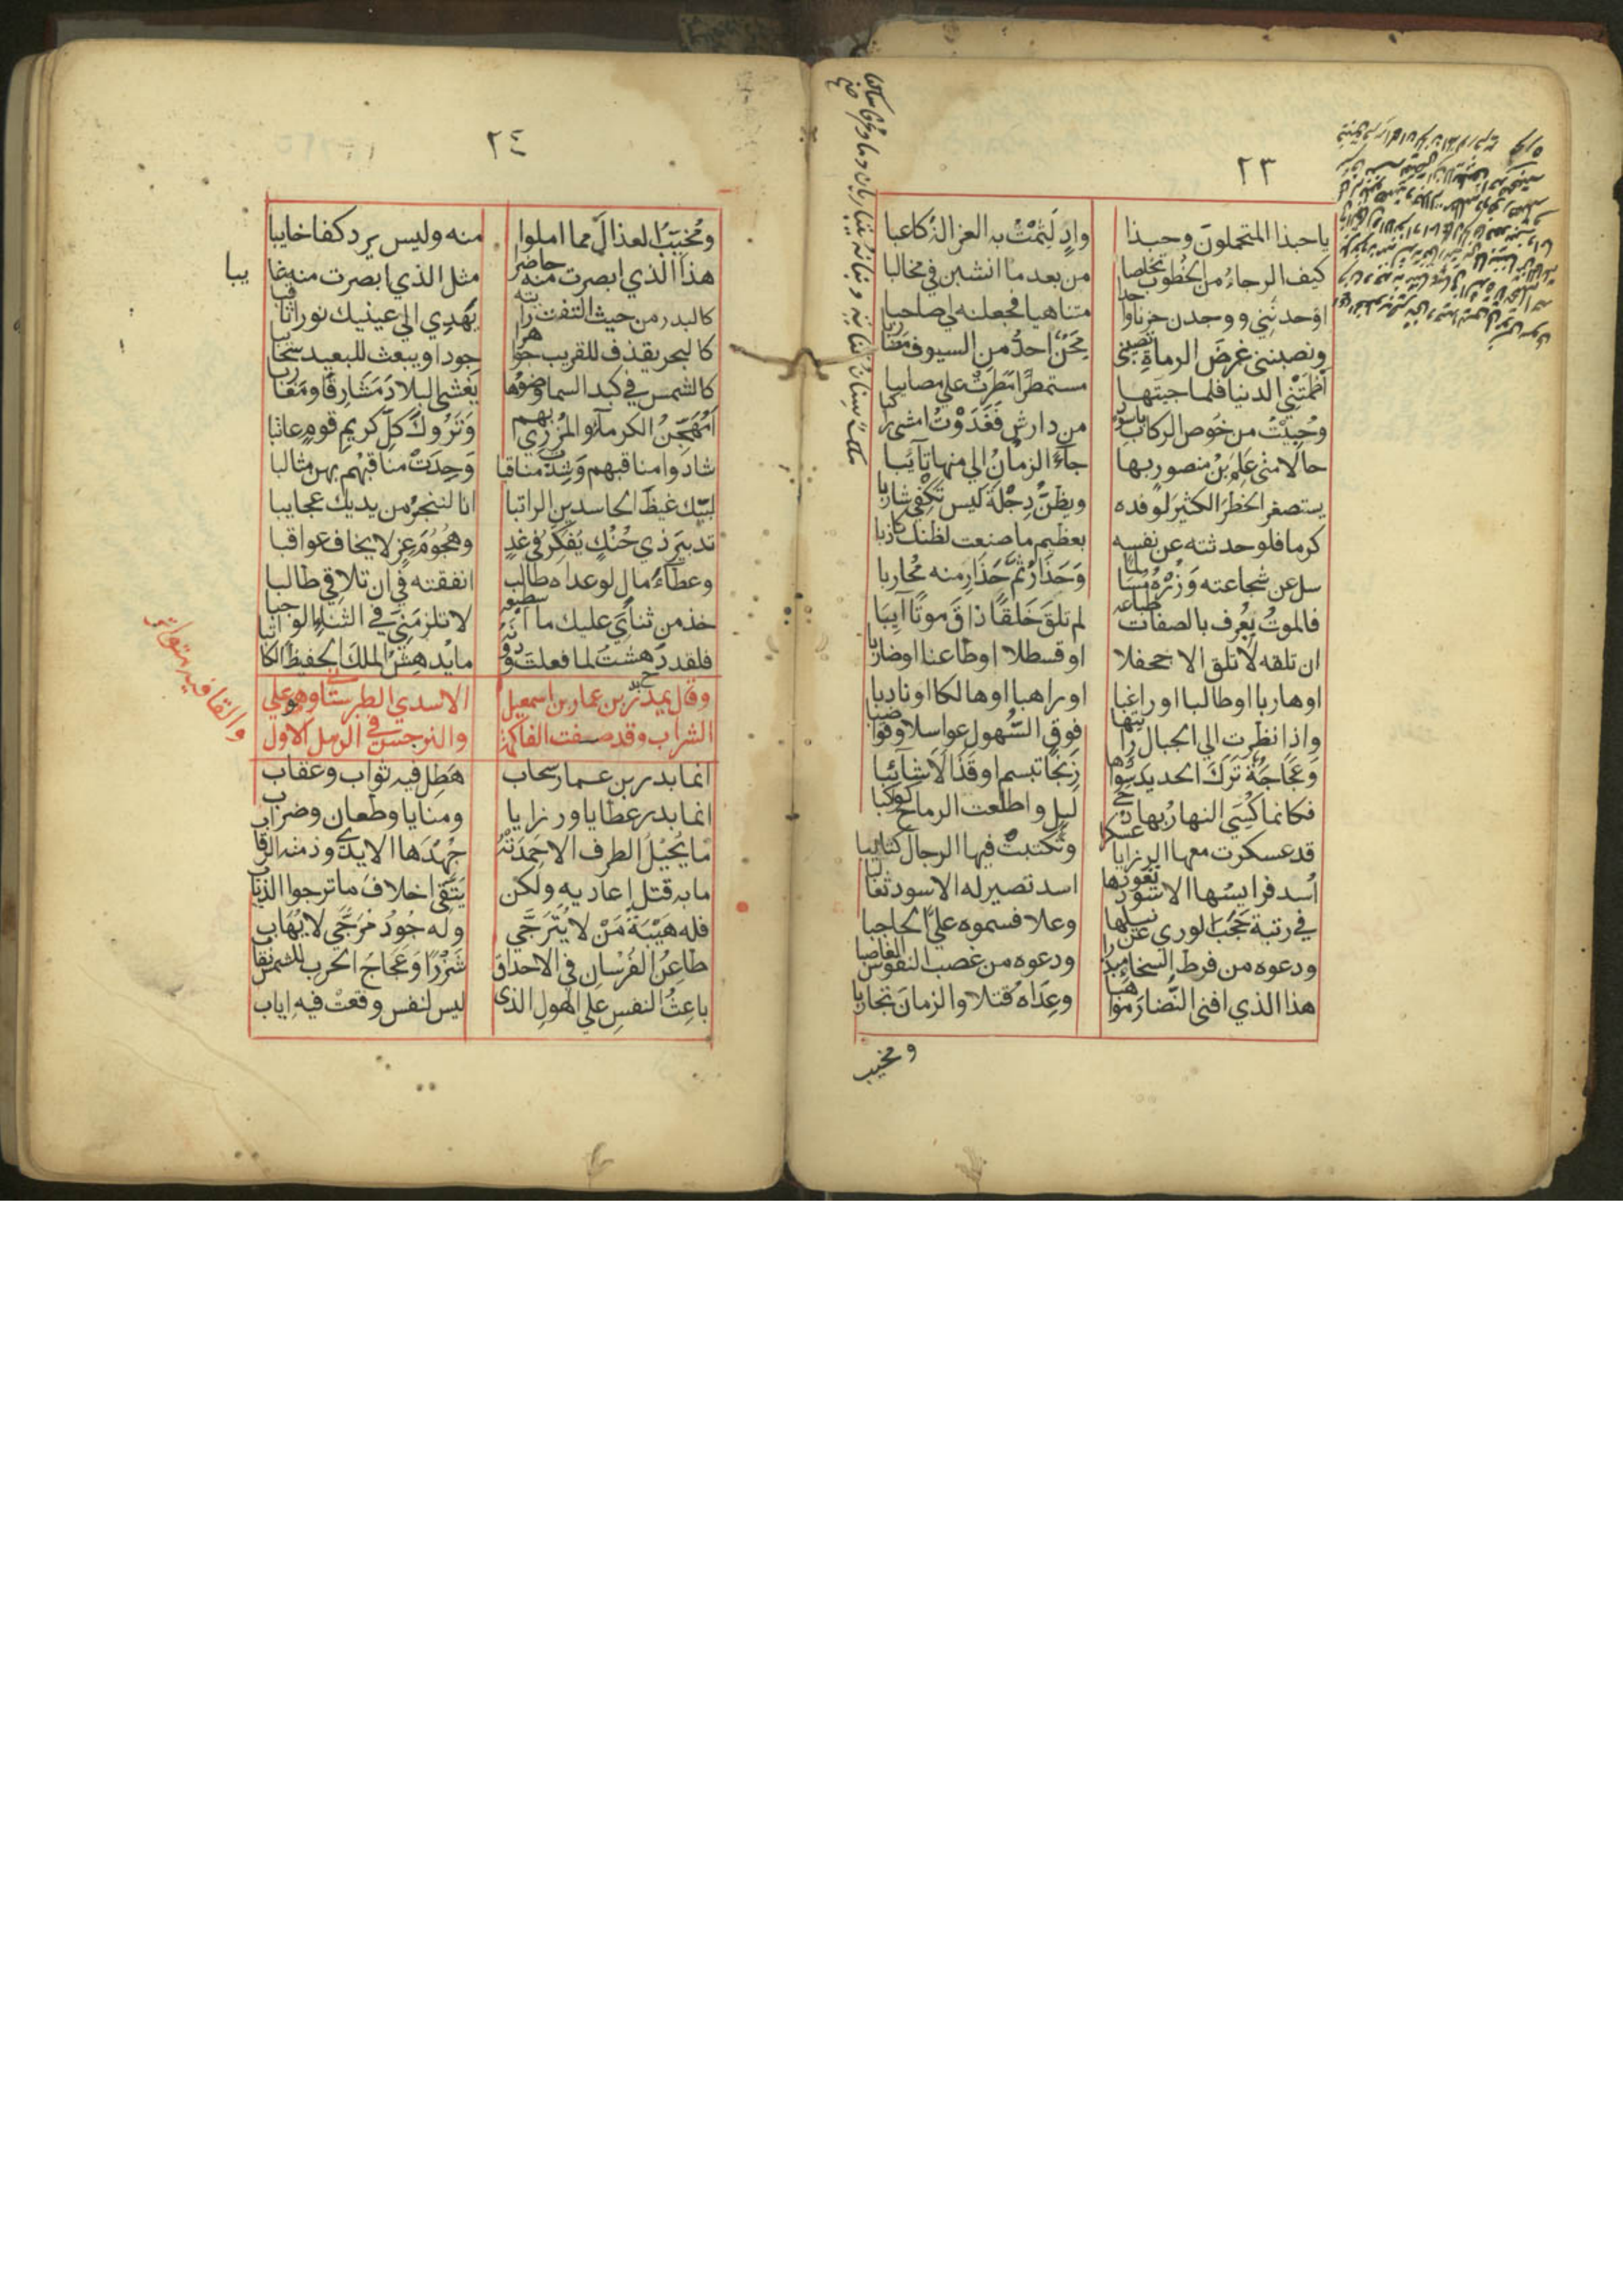 ٢٣
ياحبذا المتحملون وحبذا وادٍ لَثِمْتُ به الغزالة كاعبا
كيف الرجاءُ من الخطوب تخلصا من بعد ما انشبن في مخالبا
اوْحدنَني ووجدن حزنا واحدا متناهيا فجعلنه لي صاحبا
ونصبنني غرضَ الرماةِ تصيبني مِحَنٌ احدُّ من السيوف مضاربا
اَظْمَتْنِي الدنيا فلما جيتها مستمطرًا مَطَرَتْ علي مصايبا
وحُبِيْتُ من خَوص الركاب باسود من دارش فَغَدَوْتُ امشي راكبا
حالًا متى عَلِمَ بْنُ منصور بها جاءَ الزمانُ الي منها تآيبا
يستصغر الخطرَ الكثيرَ لوفده ويظنُّ دِجْلةَ ليس تَكْفِي شاربا
كرما فلو حدثته عن نفسه بعظيم ما صنعت لظنك كاذبا
سل عن شجاعته وَزُرْهُ مُسالما وَحَذَارِ ثُمَّ حَذَارِ منه مُحاربا
فالموتُ يُعْرف بالصفات طباعه لم تلقَ خَلقًا ذاقَ موتًا آيِبَا
ان تلقه لا تلق الا جحفلا او قسطلا او طاعنا او ضاربا
او هاربا او طالبا او راغبا او راهبا او هالكا او نادبا
واذا نظرت الي الجبال رايتها فوق السُّهول عواسلا وقواضبا
وَعَجَاجَةً تَرَكَ الحديد سوادها زِنجًا تبسم او قَذَالًا شآئبا
فكانما كُسِيَ النهارُ بها دجى ليلٍ واطلعت الرماح كوكبا
قد عسكرت معها الرزايا عسكرا وتكتبتْ فيها الرجال كتايبا
اُسد فرايسُها الاسود تقودها اسد تصير له الاسود ثعالبا
في رتبة حَجَبَ الوري عن نيلها وعلا فسموه عليَّ الحاجبا
ودعوه من فرط السخاء مبذرا ودعوه من غصب النفوس الغاصبا
هذا الذي افنى النُّضارَ مواهبا وعِدَاهُ قتلا والزمانَ تجاربا
ومخيب
٢٤
ومُخَيِّبُ العذالَ مما املوا منه وليس يرد كفا خايبا
هذا الذي ابصرت منه حاضرا مثل الذي ابصرت منه غايبا
يبا
كالبدر من حيث التفت رايته يَهْدِي الي عينيك نورا ثاقبا
كالبحر يقذف للقريب جواهرا جودا ويبعث للبعيد سحايبا
كالشمس في كبد السما وضوها يَغشى البلادَ مَشَارِقًا ومَغاربا
اَمُهَجِّنَ الكرمآءِ والمُزْرِي بهم وَتَرُوكَ كلِّ كريمِ قومٍ عاتبا
شادوا مناقبهم وَشِدْتَ مناقبا وَجِدَتْ مناقبهُم بهن مثالبا
لبّيك غيظَ الحاسدين الراتبا انا لنخبرُ من يديك عجايبا
تدبيرَ ذي حُنُكٍ يُفكّرُ في غدٍ وهجُومَ غِرٍ لا يخاف عواقبا
وعطآءَ مالٍ لو عداه طالب انفقته في ان تلاقي طالبا
خذ من ثنآيَ عليك ما اسطيعه لا تلزمَنِّي في الثناء الواجبا
فلقد دَهشْتَ لما فعلتَ ودونه ما يُدهِشُ الملَكَ الحفيظَ الكاتبا
وقال يمدح بدر بن عمار بن اسمعيل الاسدي الطبرستاني وهو علي
الشراب وقد صفت الفاكهة والنرجس في الرمل الاول
والقافيه متواتر
انما بدر بن عمار سحاب هَطِل فيه ثواب وعقاب
انما بدر عطايا ورزايا ومنايا وطعان وضراب
ما يُجيْلُ الطرف الا حَمِدَتْهُ جُهْدَها الايدي وذمته الرقاب
ما به قتل اعاديه ولكن يَتَّقِي اخلافَ ما ترجوا الذياب
فله هَيْبَةُ مَنْ لا يُتَرَجَّي وله جُودُ مُرَجَّي لا يُهَاب
طاعِنُ الفُرْسان في الاحداق شَزْرًا وَعَجَاجُ الحرب للشمس نقاب
باعِثُ النفسِ علي الهولِ الذي ليس لنفس وقعتْ فيه اِياب